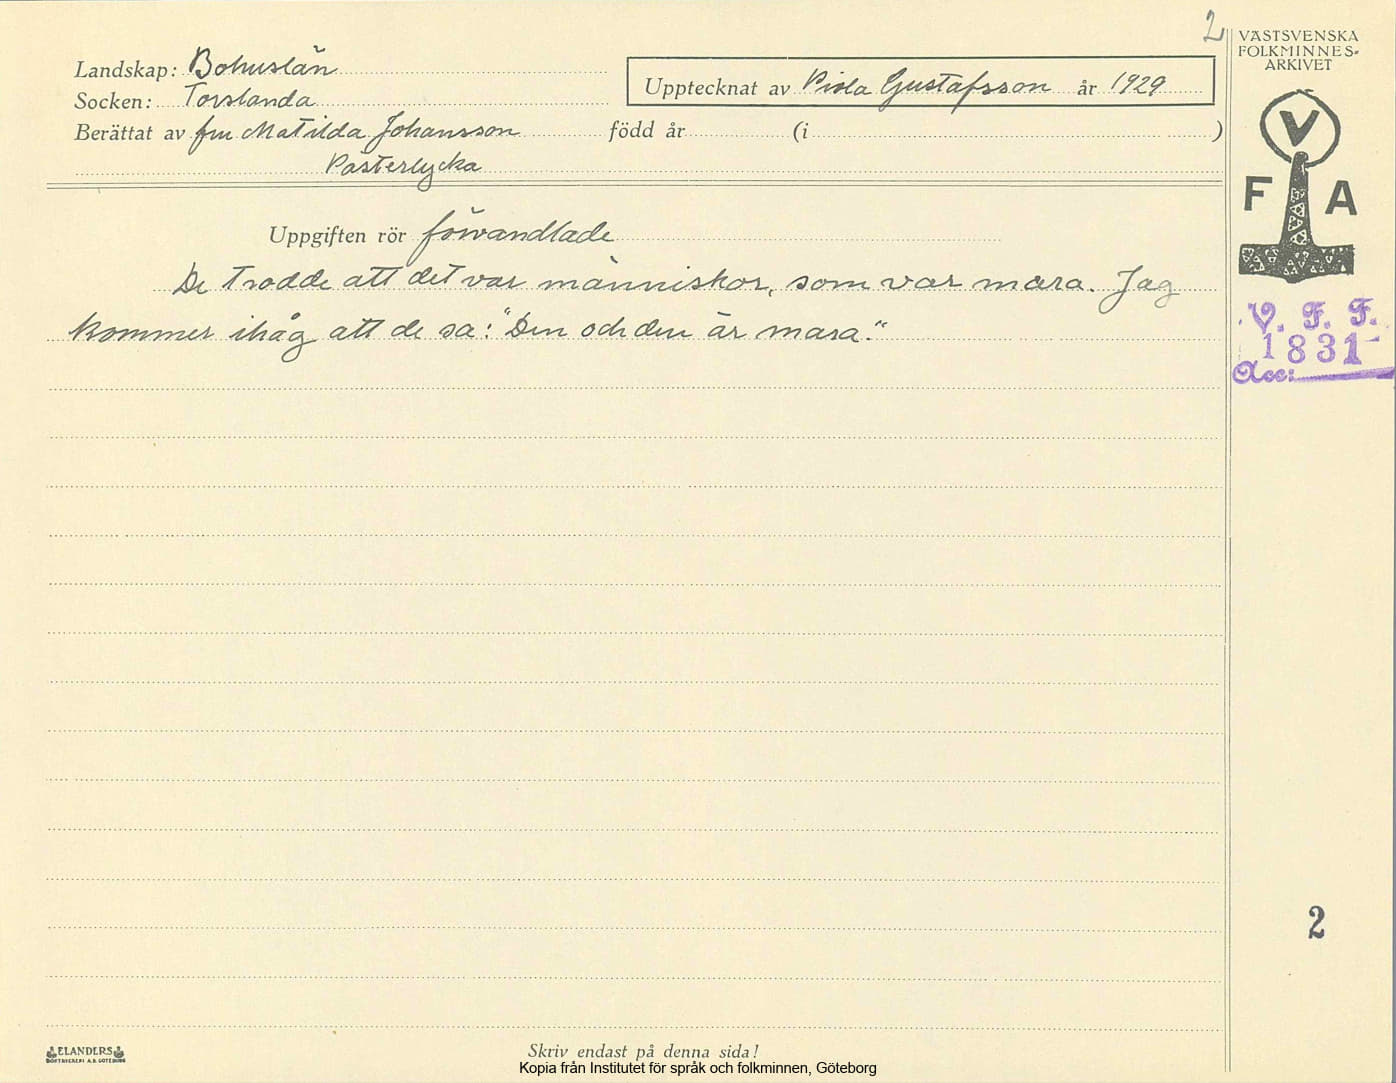 2
VÄSTSVENSKA
FOLKMINNES-
ARKIVET
Landskap: Bohuslän
Upptecknat av Viola Gustafsson år 1929
Socken: Torslanda
Berättat av fru Matilda Johansson född år (i )
Påsterlycka
V
F A
Uppgiften rör förvandlade
De trodde att det var människor, som var mara. Jag
kommer ihåg att de sa: "Den och den är mara."
V. F. F.
1831
Acc:
2
ELANDERS
BOKTRYCKERI A.B. GÖTEBORG
Skriv endast på denna sida!
Kopia från Institutet för språk och folkminnen, Göteborg